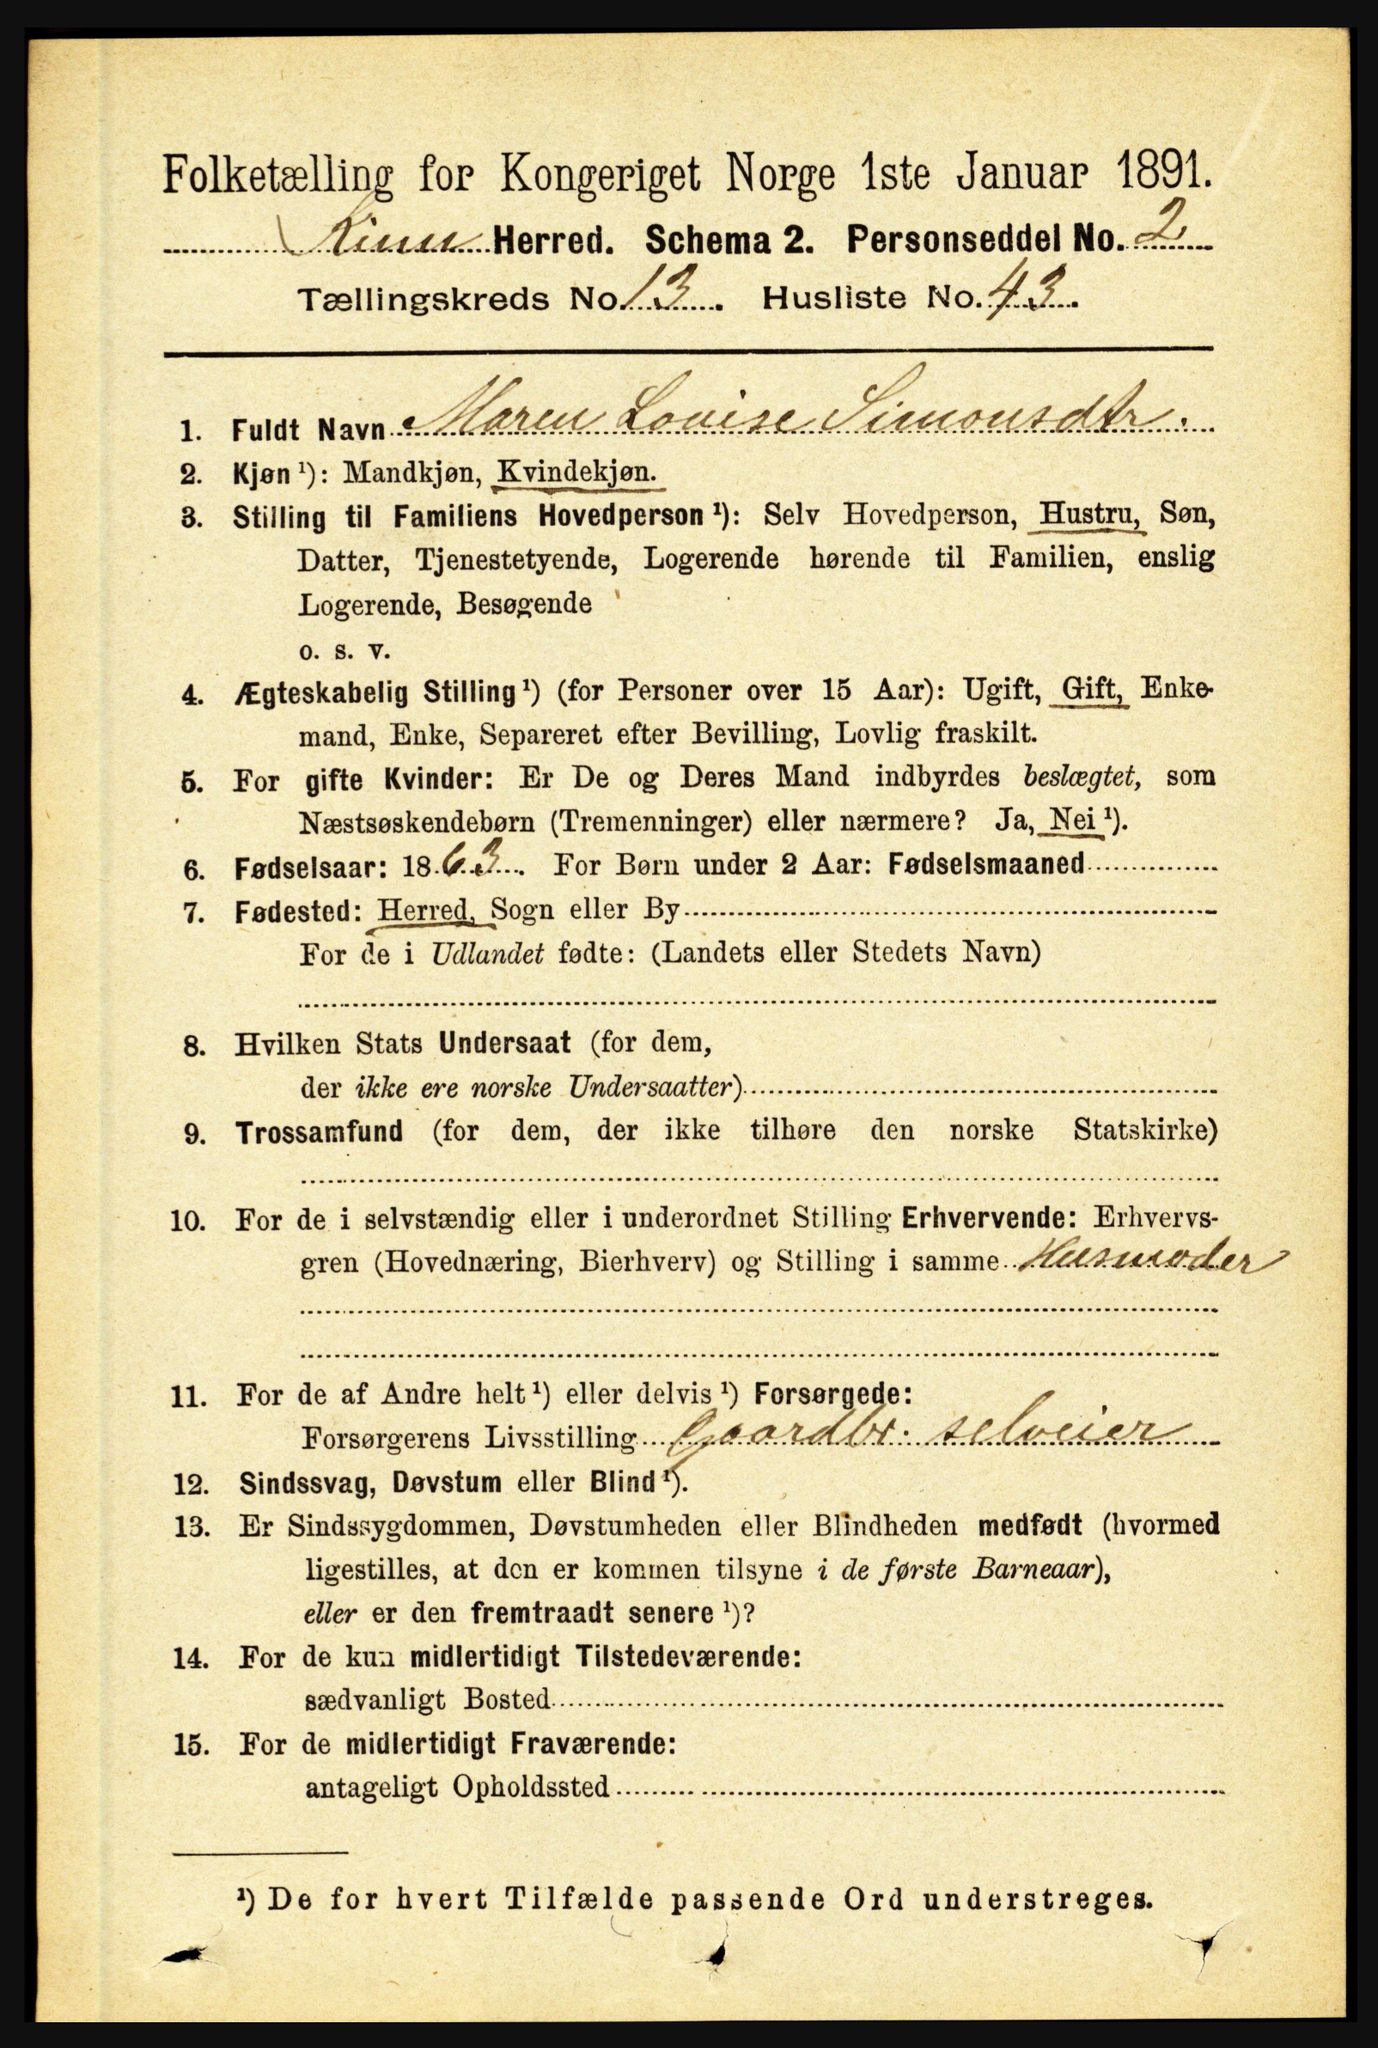 Folketælling for Kongeriget Norge 1ste Januar 1891.
Kinn Herred. Schema 2. Personseddel No. 2
Tællingskreds No. 13. Husliste No. 43.
1. Fuldt Navn Maren Lovise Simonsdtr.
2. Kjøn ¹): Mandkjøn, Kvindekjøn.
3. Stilling til Familiens Hovedperson ¹): Selv Hovedperson, Hustru, Søn,
Datter, Tjenestetyende, Logerende hørende til Familien, enslig
Logerende, Besøgende
o. s. v.
4. Ægteskabelig Stilling ¹) (for Personer over 15 Aar): Ugift, Gift, Enke-
mand, Enke, Separeret efter Bevilling, Lovlig fraskilt.
5. For gifte Kvinder: Er De og Deres Mand indbyrdes beslægtet, som
Næstsøskendebørn (Tremenninger) eller nærmere? Ja, Nei ¹).
6. Fødselsaar: 1863. For Børn under 2 Aar: Fødselsmaaned
7. Fødested: Herred, Sogn eller By
For de i Udlandet fødte: (Landets eller Stedets Navn)
8. Hvilken Stats Undersaat (for dem,
der ikke ere norske Undersaatter)
9. Trossamfund (for dem, der ikke tilhøre den norske Statskirke)
10. For de i selvstændig eller i underordnet Stilling Erhvervende: Erhvervs-
gren (Hovednæring, Bierhverv) og Stilling i samme Husmoder
11. For de af Andre helt ¹) eller delvis ¹) Forsørgede:
Forsørgerens Livsstilling Gaardbr. selveier
12. Sindssvag, Døvstum eller Blind ¹).
13. Er Sindssygdommen, Døvstumheden eller Blindheden medfødt (hvormed
ligestilles, at den er kommen tilsyne i de første Barneaar),
eller er den fremtraadt senere ¹)?
14. For de kun midlertidigt Tilstedeværende:
sædvanligt Bosted
15. For de midlertidigt Fraværende:
antageligt Opholdssted
¹) De for hvert Tilfælde passende Ord understreges.